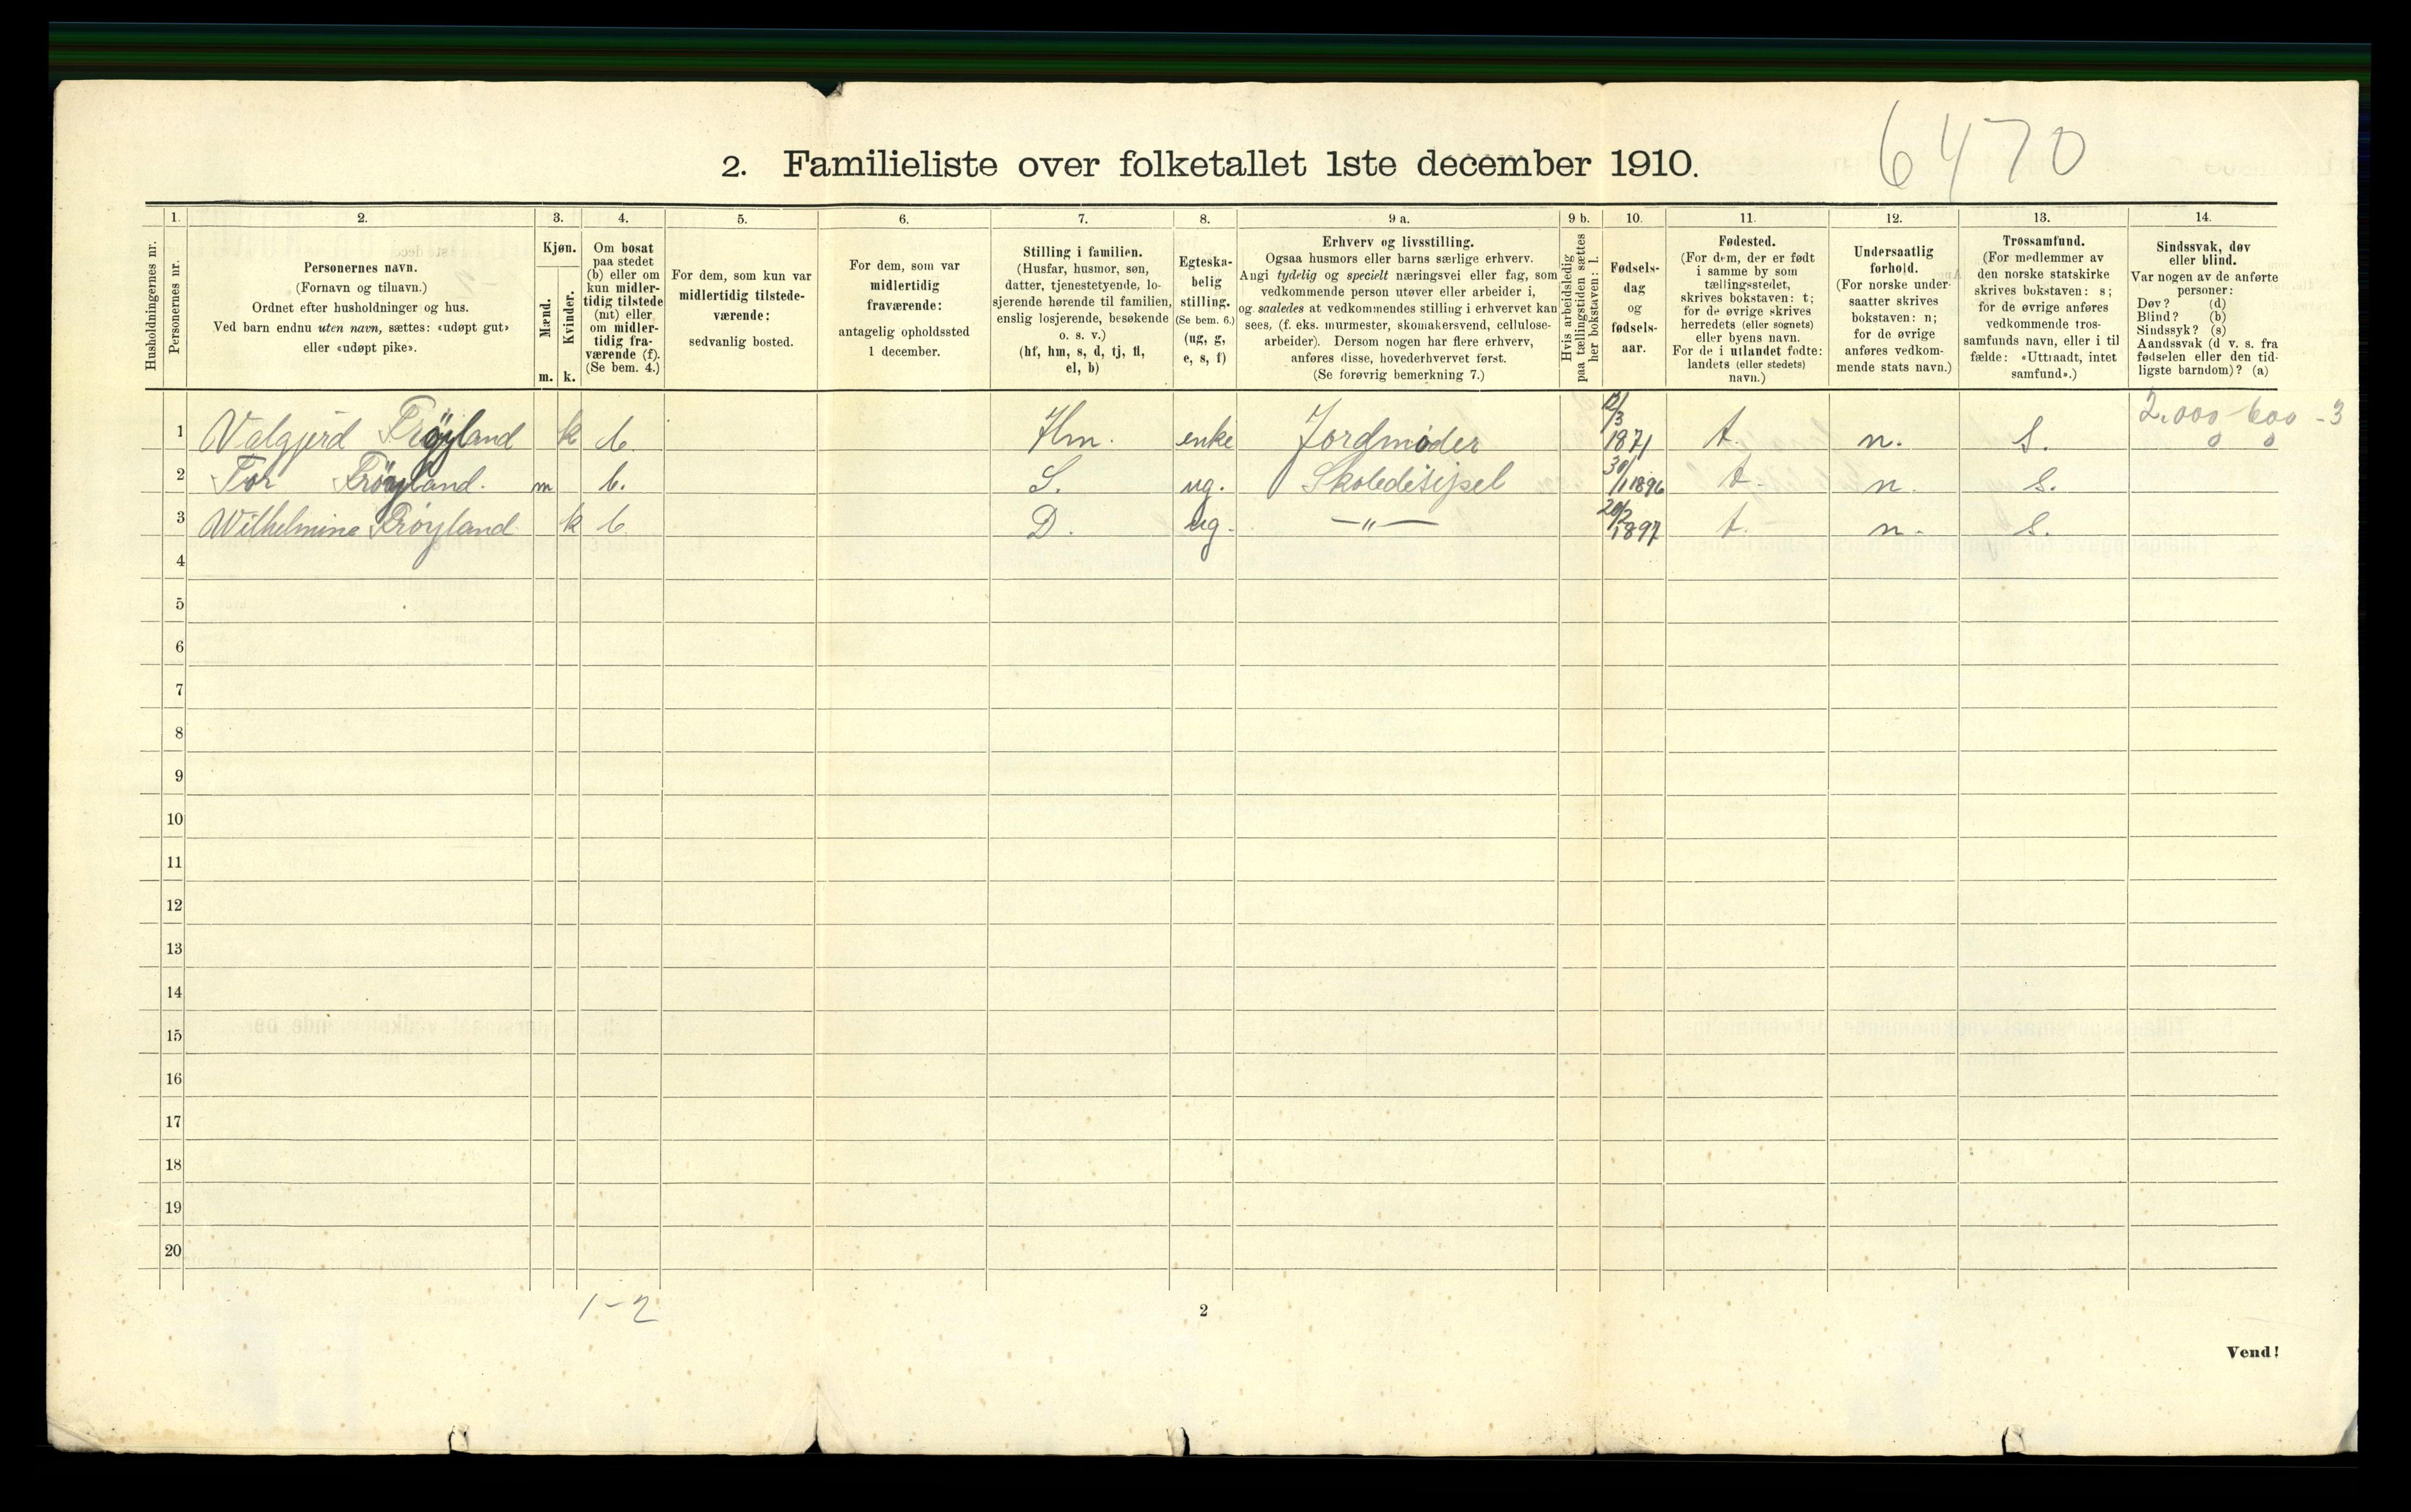 6470
2. Familieliste over folketallet 1ste december 1910.
Husholdningernes nr.
1. Personernes nr.
2.
Personernes navn.
(Fornavn og tilnavn.)
Ordnet efter husholdninger og hus.
Ved barn endnu uten navn, sættes: «udøpt gut»
eller «udøpt pike».
3.
Kjøn.
Mænd.
Kvinder.
m. k.
4.
Om bosat
paa stedet
(b) eller om
kun midler-
tidig tilstede
(mt) eller
om midler-
tidig fra-
værende (f).
(Se bem. 4.)
5.
For dem, som kun var
midlertidig tilstede-
værende:
sedvanlig bosted.
6.
For dem, som var
midlertidig
fraværende:
antagelig opholdssted
1 december.
7.
Stilling i familien.
(Husfar, husmor, søn,
datter, tjenestetyende, lo-
sjerende hørende til familien,
enslig losjerende, besøkende
o. s. v.)
(hf, hm, s, d, tj, fl,
el, b)
8.
Egteska-
belig
stilling.
(Se bem. 6.)
(ug, g,
e, s, f)
9 a.
Erhverv og livsstilling.
Ogsaa husmors eller barns særlige erhverv.
Angi tydelig og specielt næringsvei eller fag, som
vedkommende person utøver eller arbeider i,
og saaledes at vedkommendes stilling i erhvervet kan
sees, (f. eks. murmester, skomakersvend, cellulose-
arbeider). Dersom nogen har flere erhverv,
anføres disse, hovederhvervet først.
(Se forøvrig bemerkning 7.)
9 b.
Hvis arbeidsledig
paa tællingstiden sættes
her bokstaven: l.
10.
Fødsels-
dag
og
fødsels-
aar.
11.
Fødested.
(For dem, der er født
i samme by som
tællingsstedet,
skrives bokstaven: t;
for de øvrige skrives
herredets (eller sognets)
eller byens navn.
For de i utlandet fødte:
landets (eller stedets)
navn.)
12.
Undersaatlig
forhold.
(For norske under-
saatter skrives
bokstaven: n;
for de øvrige
anføres vedkom-
mende stats navn.)
13.
Trossamfund.
(For medlemmer av
den norske statskirke
skrives bokstaven: s;
for de øvrige anføres
vedkommende tros-
samfunds navn, eller i til
fælde: «Uttraadt, intet
samfund».)
14.
Sindssvak, døv
eller blind.
Var nogen av de anførte
personer:
Døv? (d)
Blind? (b)
Sindssyk? (s)
Aandssvak (d v. s. fra
fødselen eller den tid-
ligste barndom)? (a)
2.000 - 600 - 3
1 Valgjerd Frøyland k b. Hm. enke Jordmoder 12/3 1871 t. n. S.
2 Tor Frøyland. m b. S. ug. Skoledisipel 30/1 1896 t. n. S.
3 Wilhelmine Frøyland k b D. ug. —"— 20/2 1897 t. n. S.
4
5
6
7
8
9
10
11
12
13
14
15
16
17
18
19
20
1-2
2
Vend!